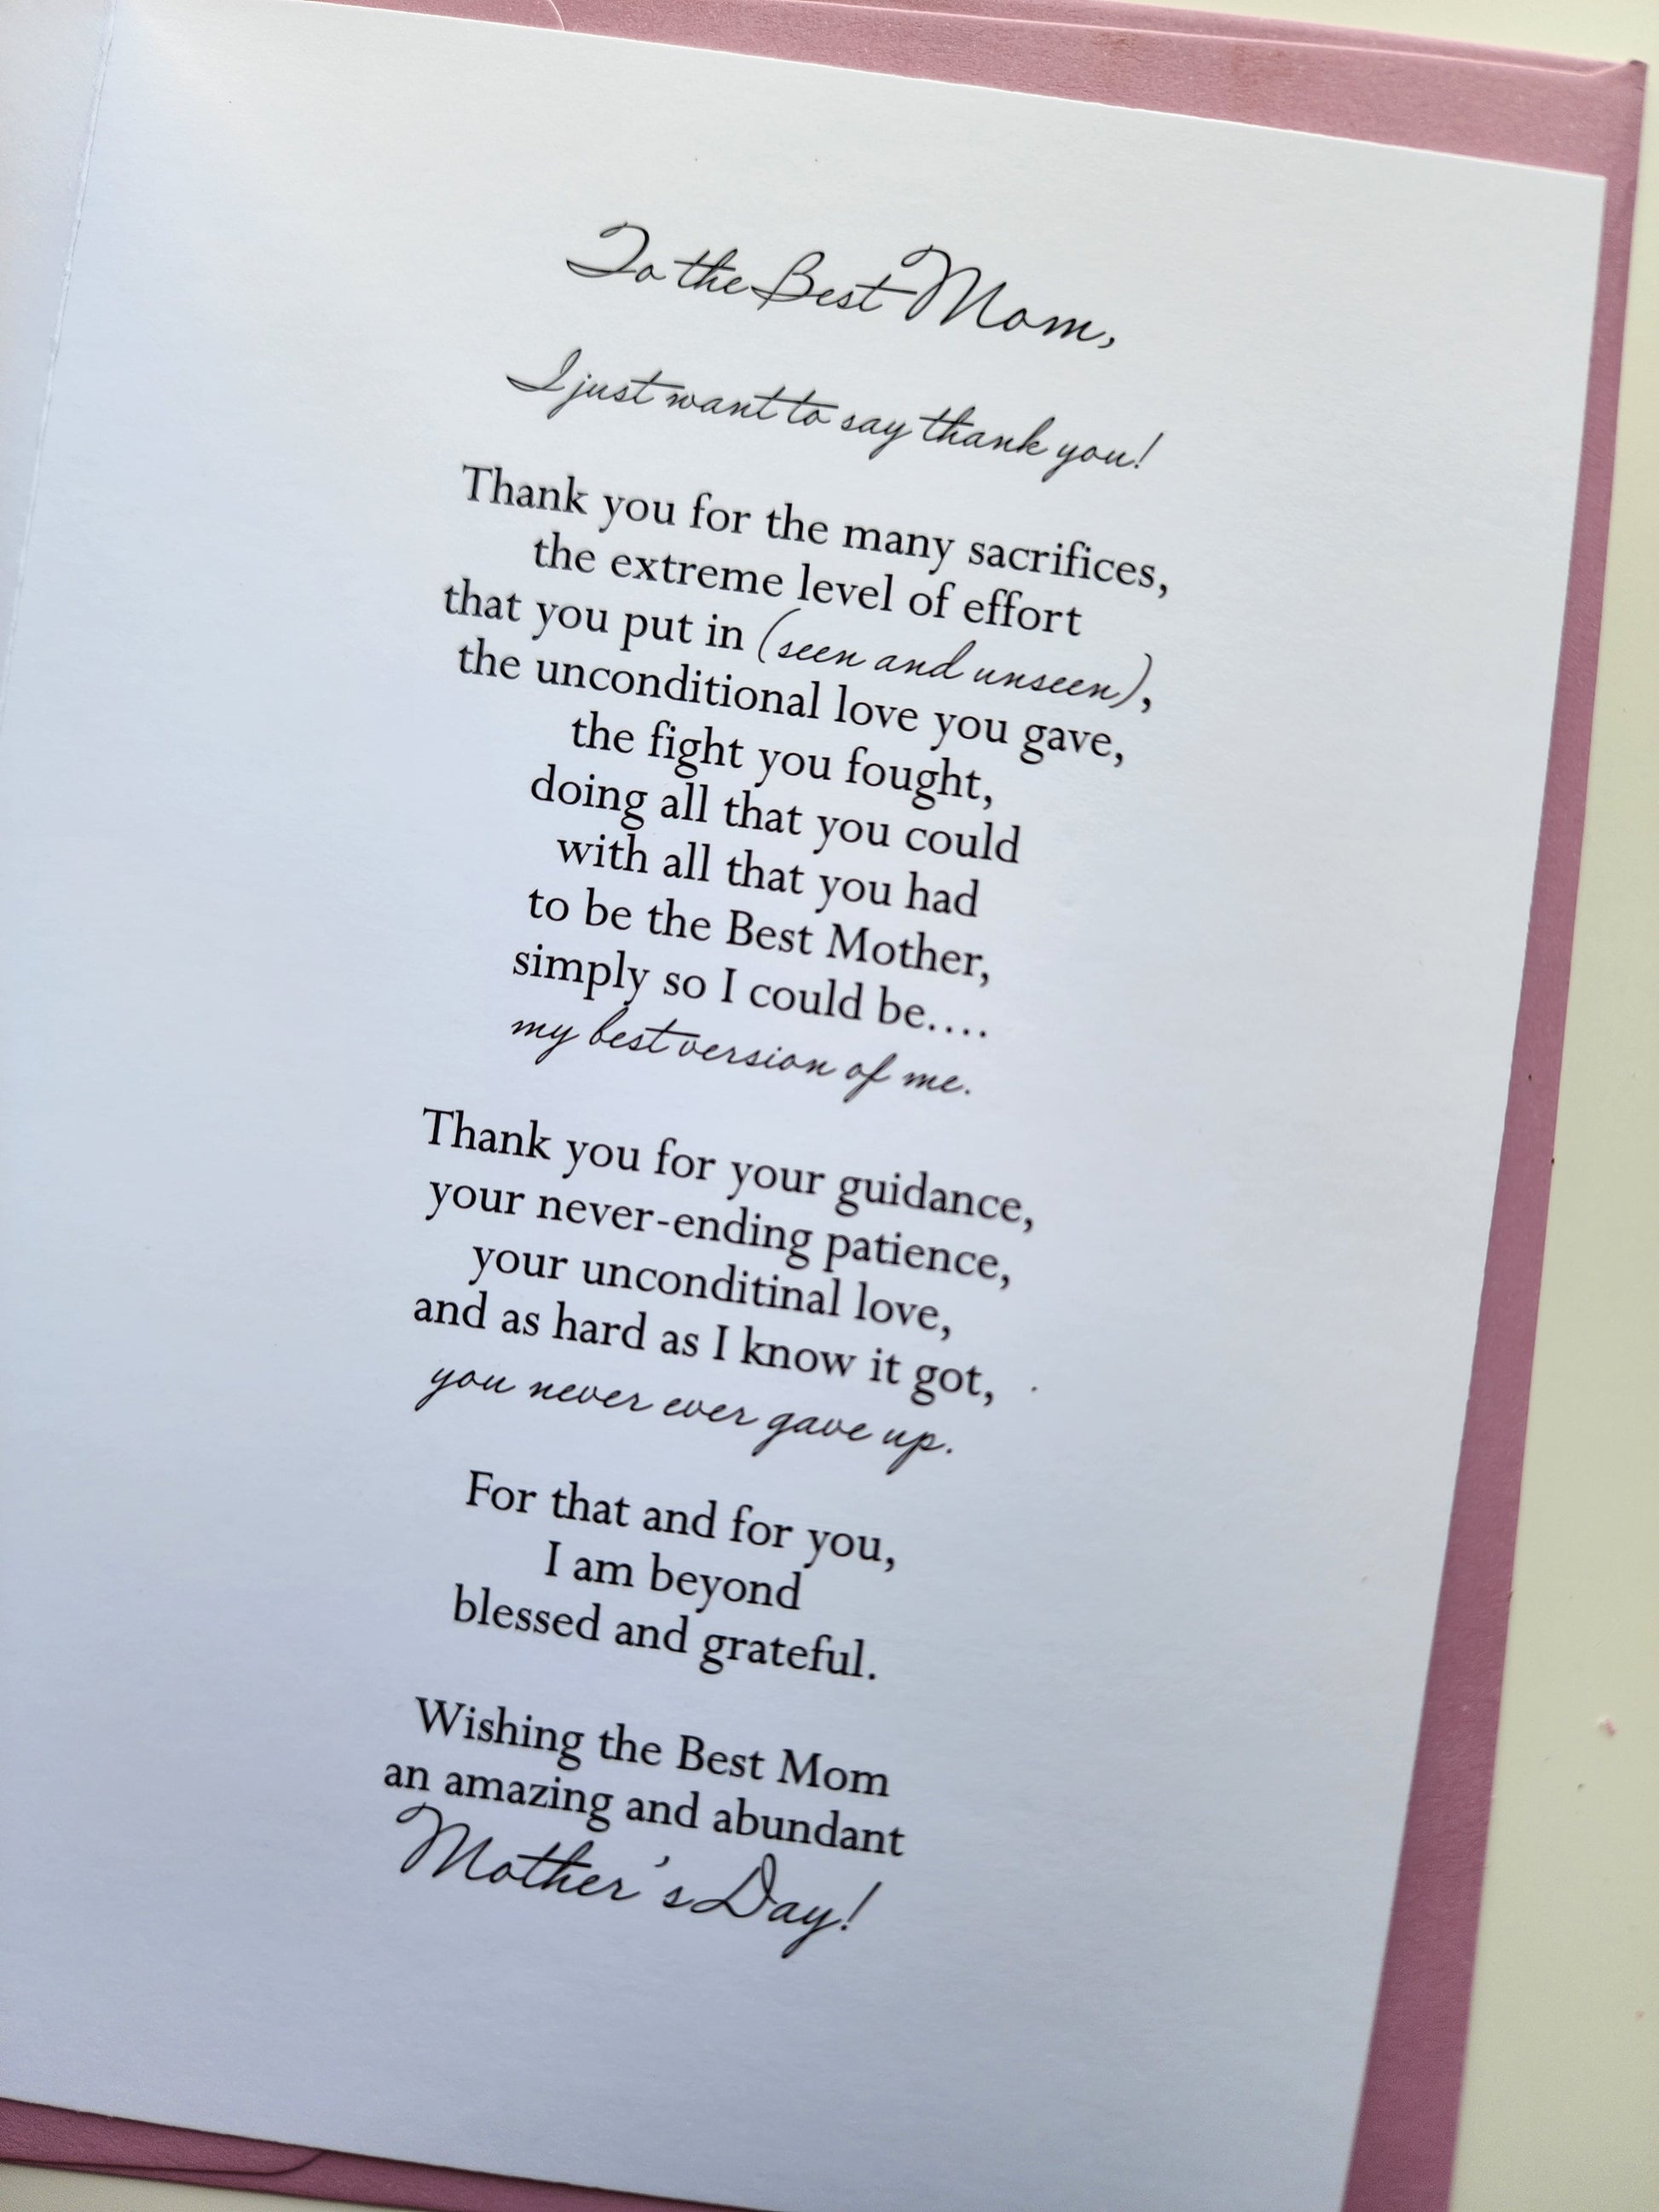 To the Best Mom,
I just want to say thank you!
Thank you for the many sacrifices,
the extreme level of effort
that you put in (seen and unseen),
the unconditional love you gave,
the fight you fought,
doing all that you could
with all that you had
to be the Best Mother,
simply so I could be....
my best version of me.
Thank you for your guidance,
your never-ending patience,
your unconditinal love,
and as hard as I know it got,
you never ever gave up.
For that and for you,
I am beyond
blessed and grateful.
Wishing the Best Mom
an amazing and abundant
Mother's Day!